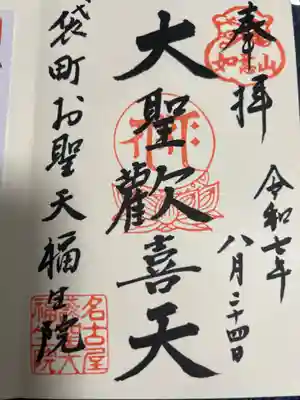 奉拝
令和七年
八月二十四日
大聖歓喜天
袋町お聖天福生院
如意山
名古屋
福生院